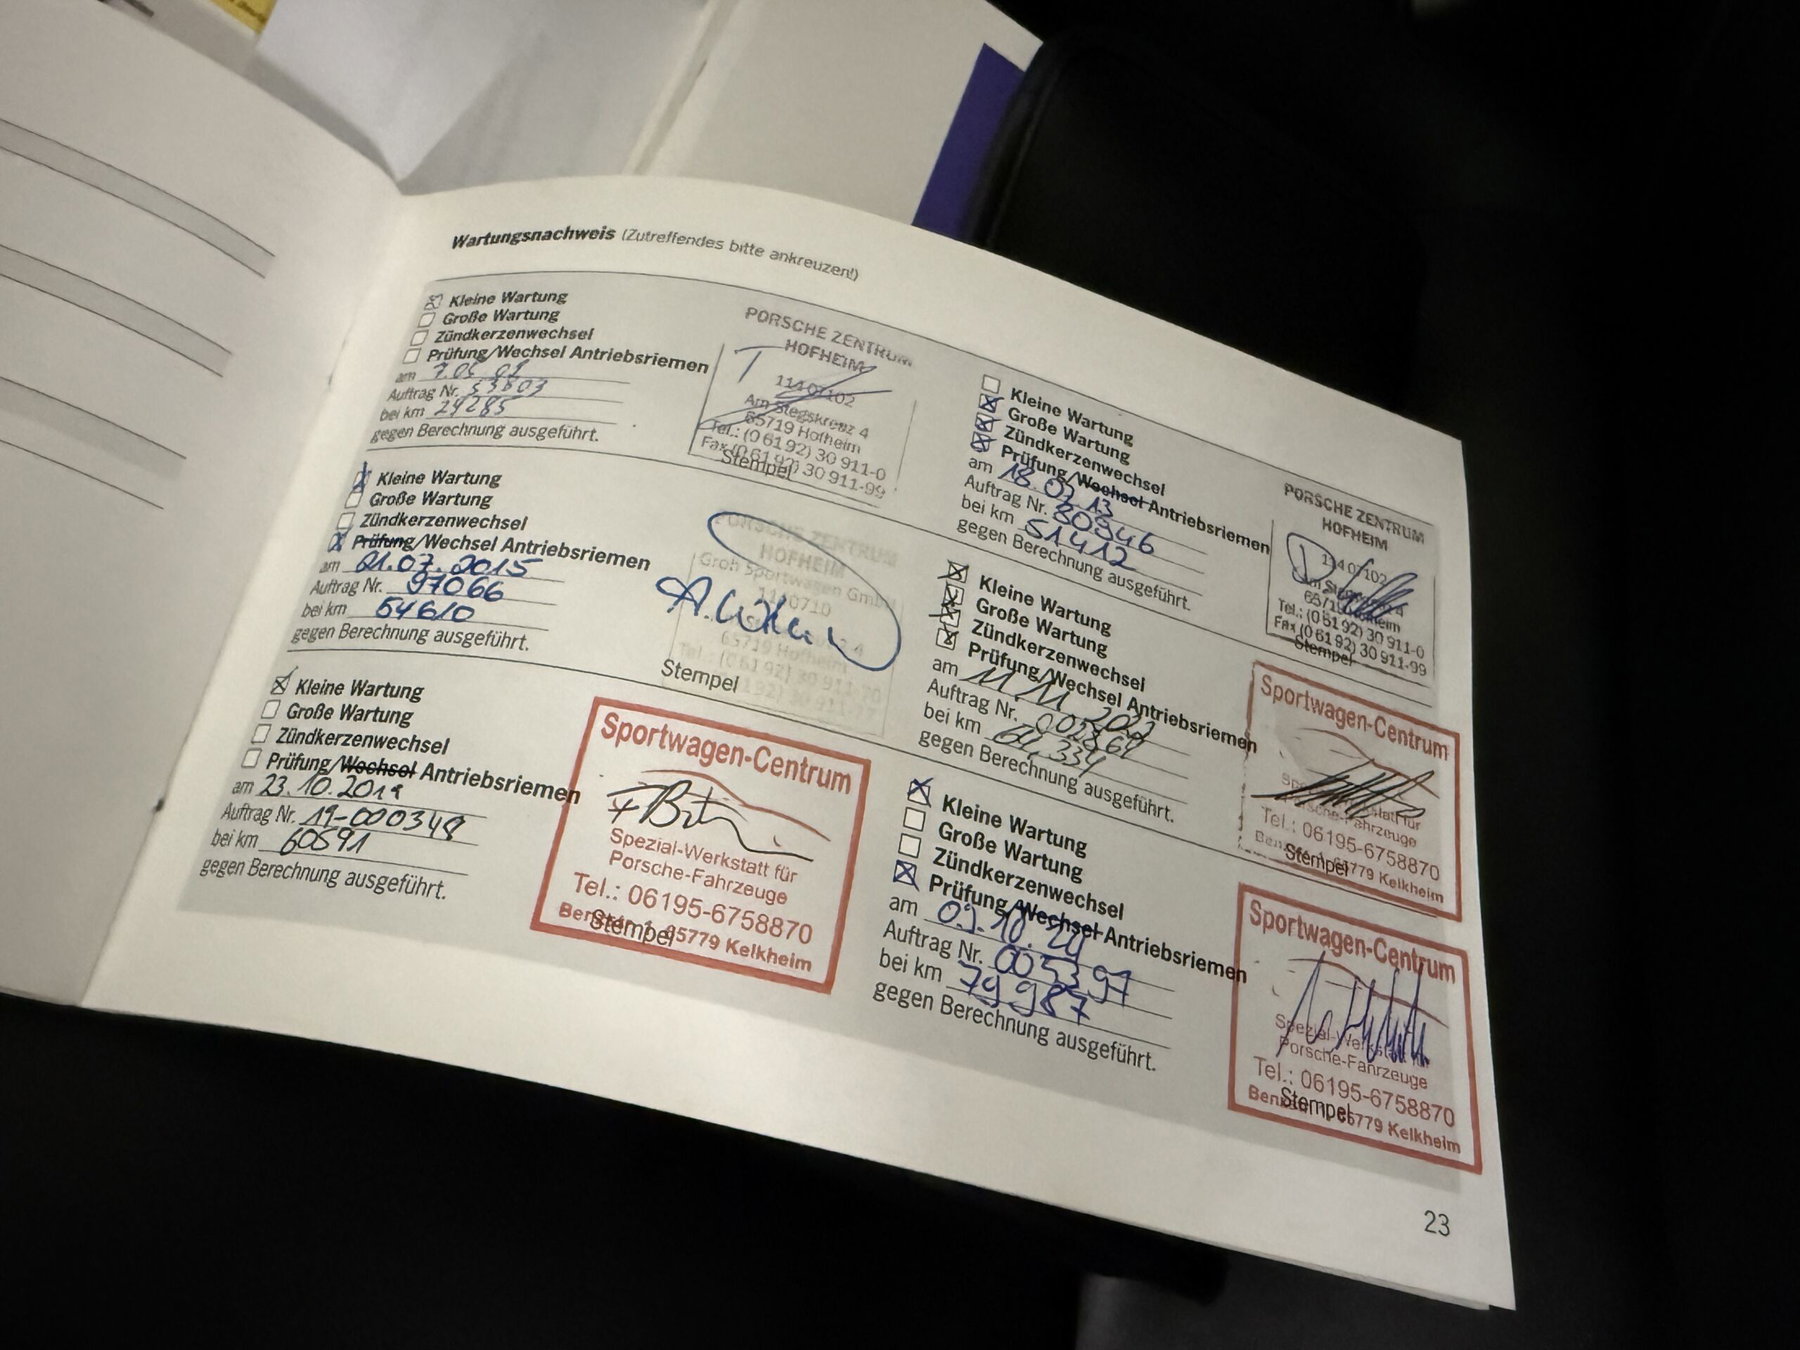 Wartungsnachweis (Zutreffendes bitte ankreuzen!)
Kleine Wartung
Große Wartung
Zündkerzenwechsel
Prüfung/Wechsel Antriebsriemen
am
Auftrag Nr. 53803
bei km 29285
gegen Berechnung ausgeführt.
PORSCHE ZENTRUM
HOFHEIM
1140102
Am Stegskreuz 4
65719 Hofheim
Tel.: (0 61 92) 30 911-0
Fax (0 61 92) 30 911-99
Stempel
Kleine Wartung
Große Wartung
Zündkerzenwechsel
Prüfung/Wechsel Antriebsriemen
am 18.02.13
Auftrag Nr. 80846
bei km 51412
gegen Berechnung ausgeführt.
PORSCHE ZENTRUM
HOFHEIM
1140102
Tel.: (0 61 92) 30 911-0
Fax (0 61 92) 30 911-99
Stempel
Kleine Wartung
Große Wartung
Zündkerzenwechsel
Prüfung/Wechsel Antriebsriemen
am 21.07.2015
Auftrag Nr. 97066
bei km 54610
gegen Berechnung ausgeführt.
PORSCHE ZENTRUM
HOFHEIM
Groh Sportwagen GmbH
1140710
65719 Hofheim
Stempel
Kleine Wartung
Große Wartung
Zündkerzenwechsel
Prüfung/Wechsel Antriebsriemen
am 11.11.2022
Auftrag Nr.
bei km 64.334
gegen Berechnung ausgeführt.
Sportwagen-Centrum
Porsche-Fahrzeuge
Tel.: 06195-6758870
Stempel 65779 Kelkheim
Kleine Wartung
Große Wartung
Zündkerzenwechsel
Prüfung/Wechsel Antriebsriemen
am 23.10.2019
Auftrag Nr. 19-000348
bei km 60591
gegen Berechnung ausgeführt.
Sportwagen-Centrum
Spezial-Werkstatt für
Porsche-Fahrzeuge
Tel.: 06195-6758870
Stempel 65779 Kelkheim
Kleine Wartung
Große Wartung
Zündkerzenwechsel
Prüfung/Wechsel Antriebsriemen
am 09.10.24
Auftrag Nr. 005397
bei km 79987
gegen Berechnung ausgeführt.
Sportwagen-Centrum
Spezial-Werkstatt für
Porsche-Fahrzeuge
Tel.: 06195-6758870
Stempel 65779 Kelkheim
23